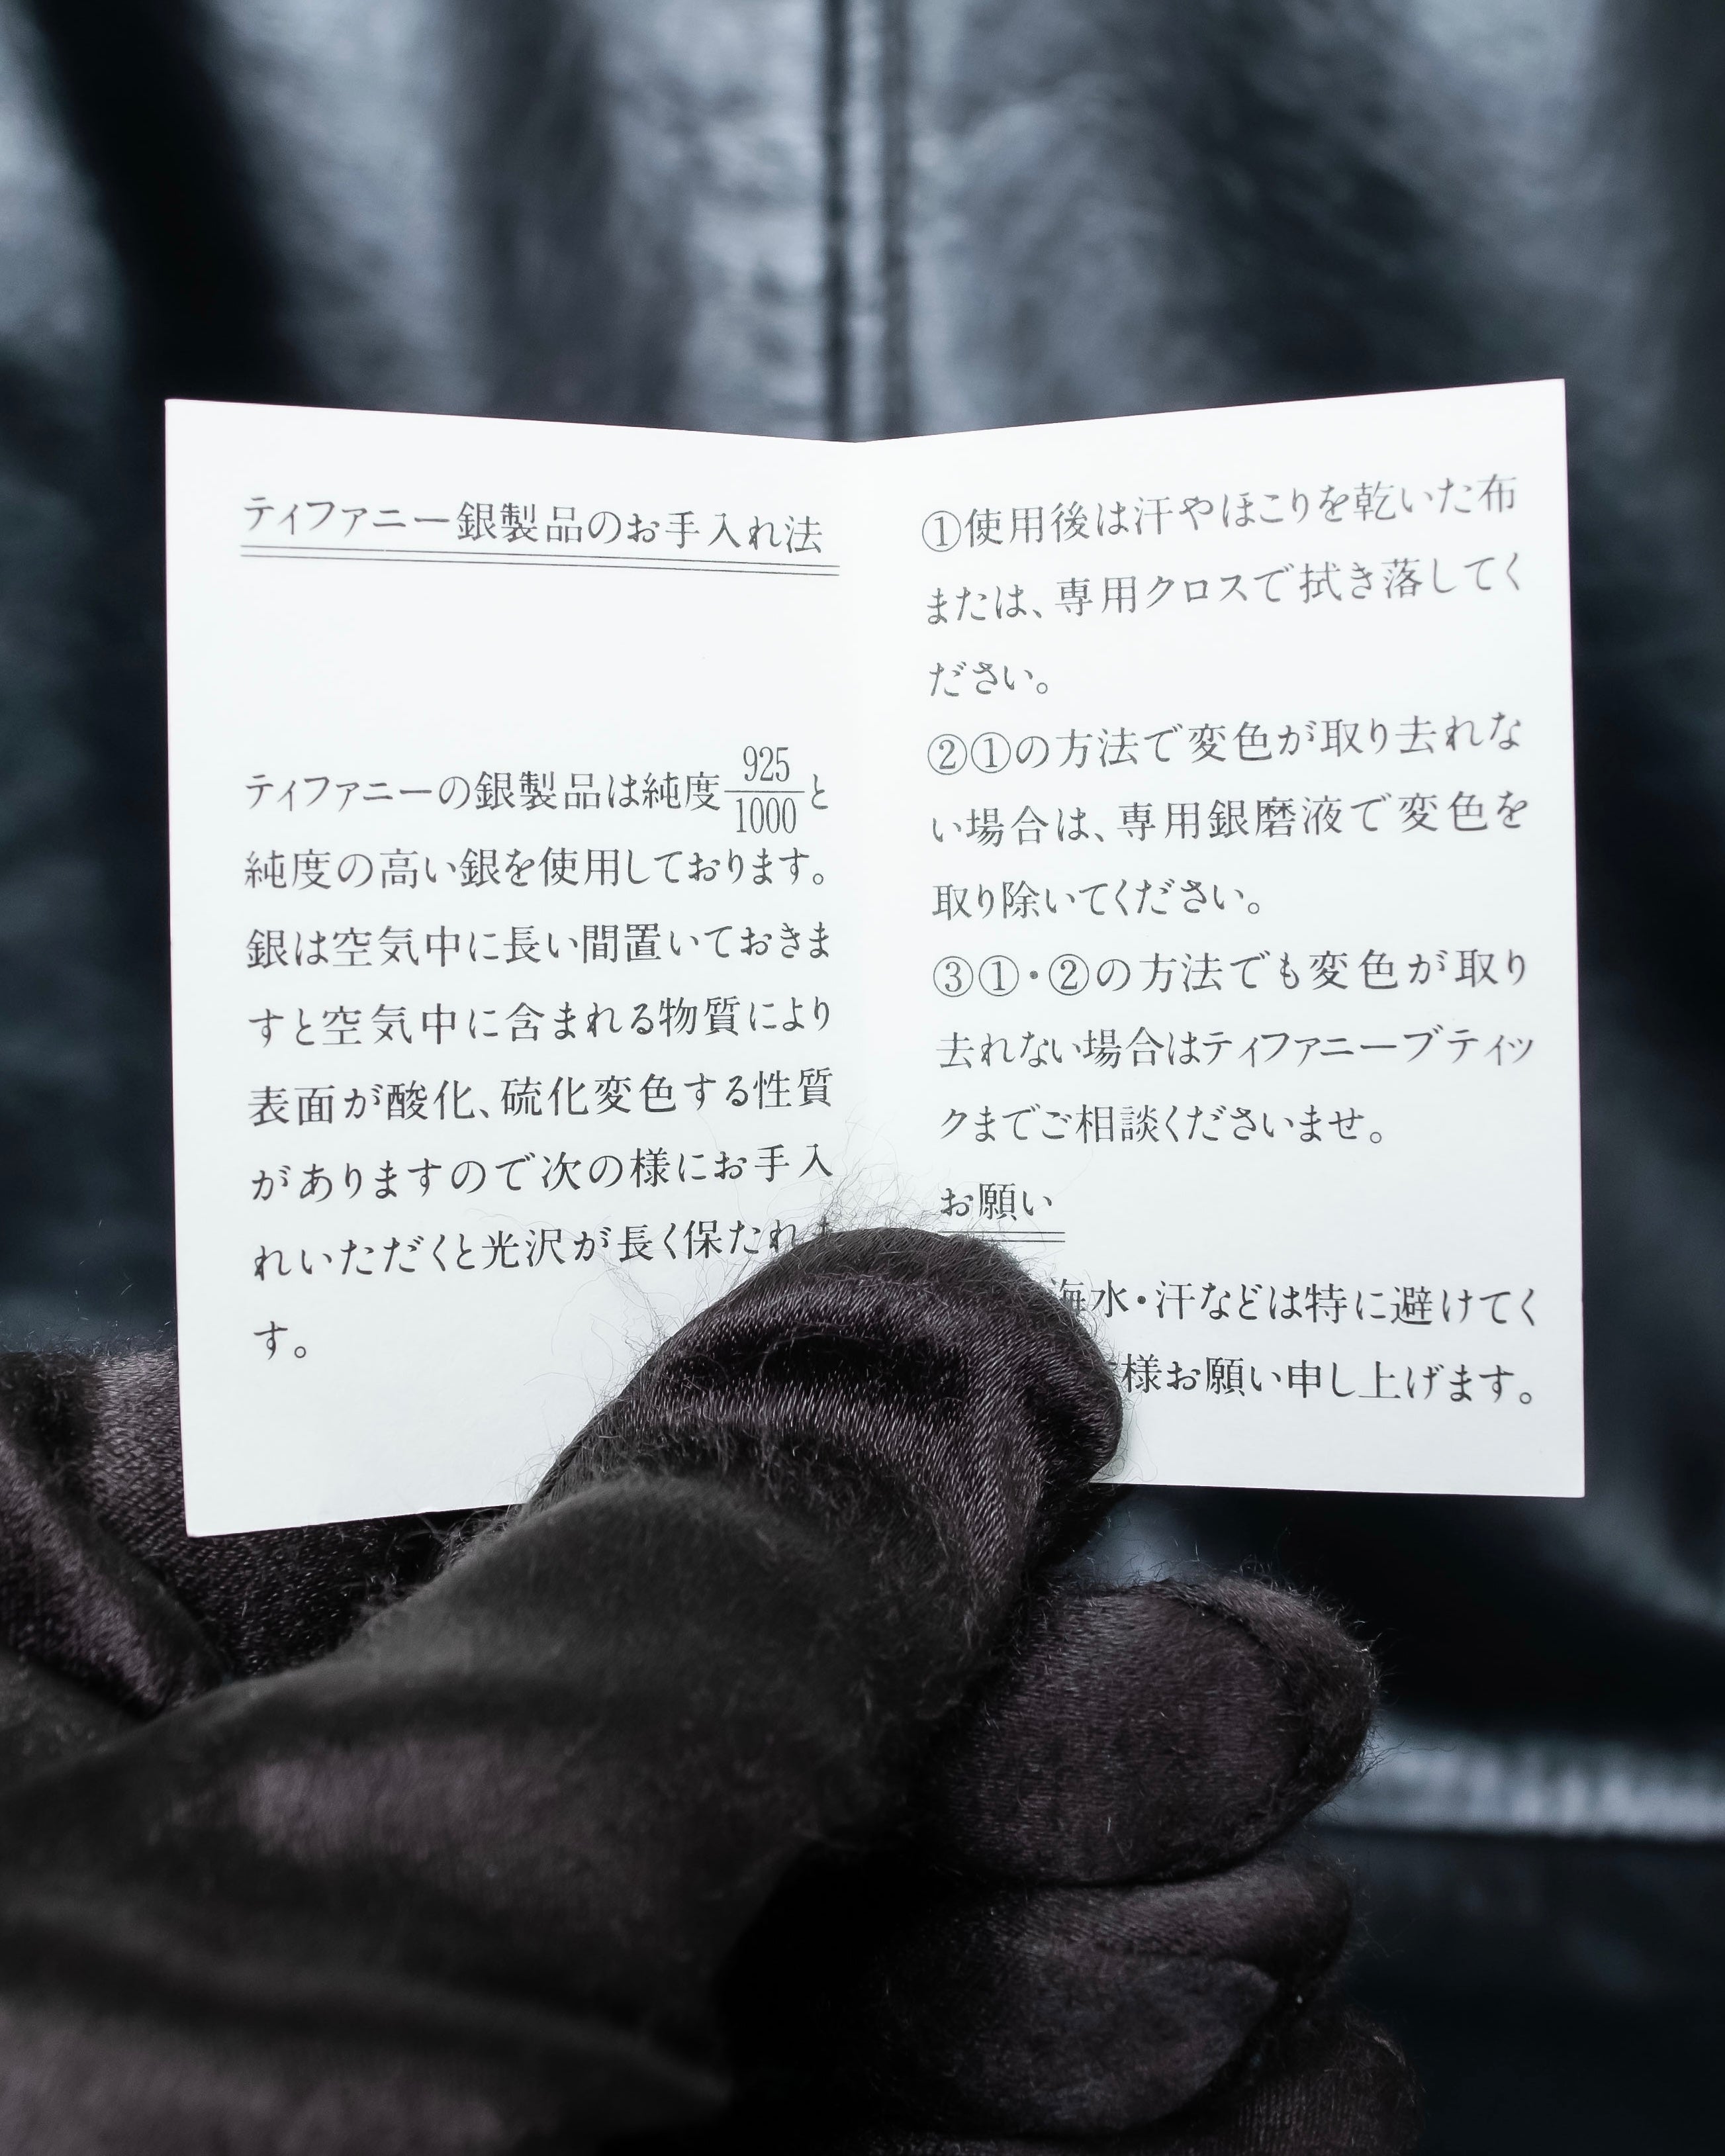 ティファニー銀製品のお手入れ法
ティファニーの銀製品は純度925/1000と
純度の高い銀を使用しております。
銀は空気中に長い間置いておきま
すと空気中に含まれる物質により
表面が酸化、硫化変色する性質
がありますので次の様にお手入
れいただくと光沢が長く保たれ
す。
①使用後は汗やほこりを乾いた布
または、専用クロスで拭き落してく
ださい。
②①の方法で変色が取り去れな
い場合は、専用銀磨液で変色を
取り除いてください。
③①・②の方法でも変色が取り
去れない場合はティファニーブティッ
クまでご相談くださいませ。
お願い
海水・汗などは特に避けてく
様お願い申し上げます。